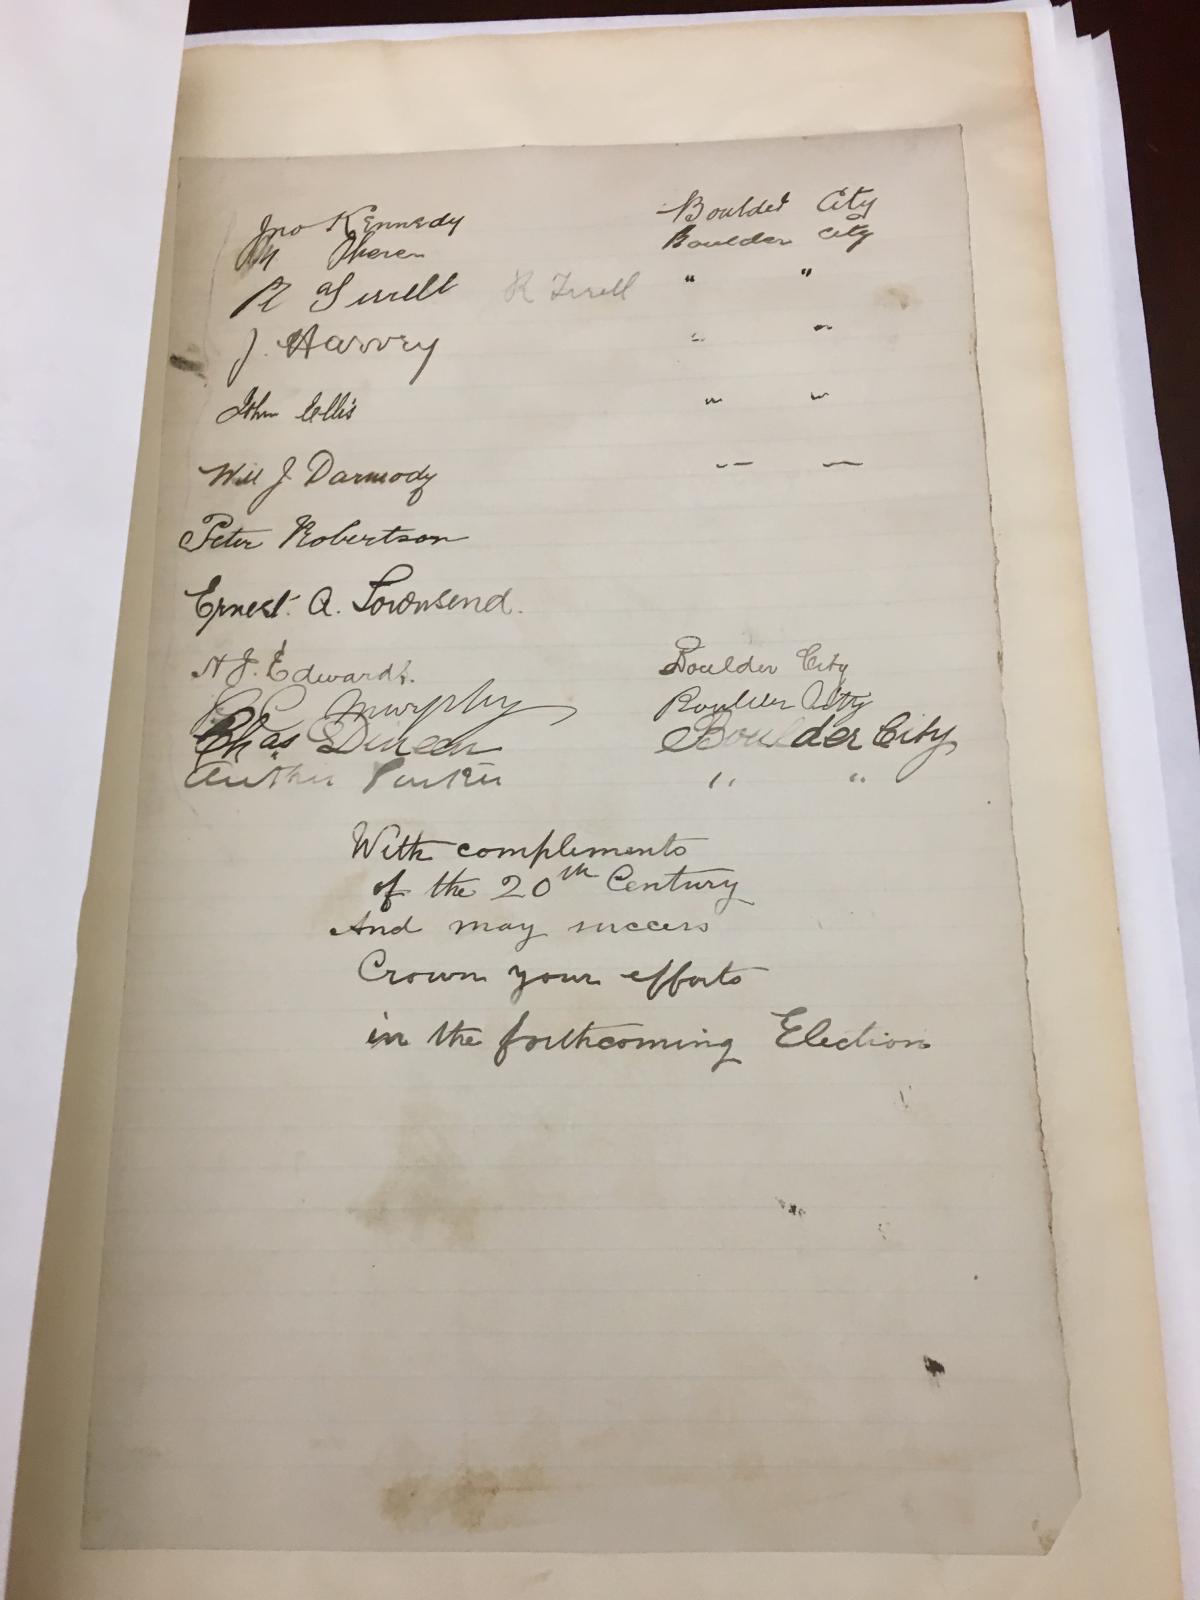 Jno Kennedy Boulder City
Boulder City
R Tirrell R Tirrell " "
J. Harvey " "
John Ellis " "
Will J Darmody " "
Peter Robertson
Ernest. A. Townsend.
A J. Edwards. Boulder City
Murphy Boulder City
Chas Dineen Boulder City
Arthur Parker " "
With complements
of the 20th Century
And may success
Crown your efforts
in the forthcoming Election